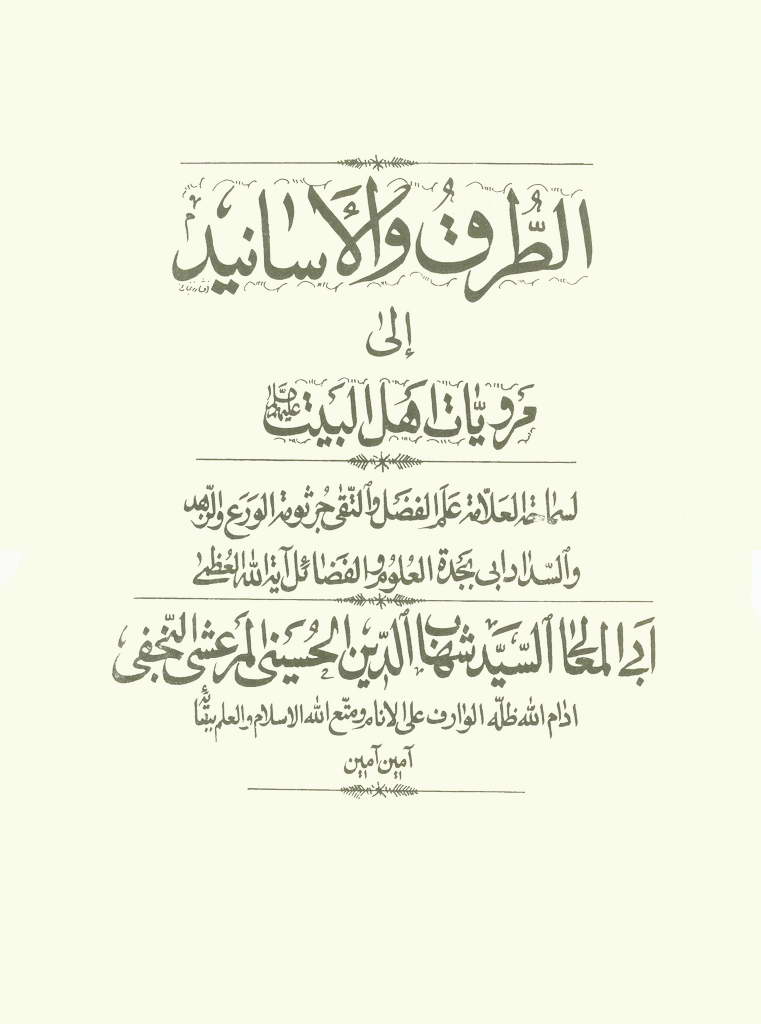 الطُّرقُ والأسانيد
إلى
مَرويّات اهل البيت عليهم السلام
لسماحة العلّامة عَلَم الفضل والتّقى جُرثومة الوَرَع والزّهد
والسّداد ابى بَجدة العُلوم والفضائل آية الله العُظمى
اَبي المعالى السيّد شهاب الدّين الحُسينى المرعشى النّجفى
ادام الله ظلّه الوارف على الانام ومتّع الله الاسلام والعلم ببقائه
آمين آمين